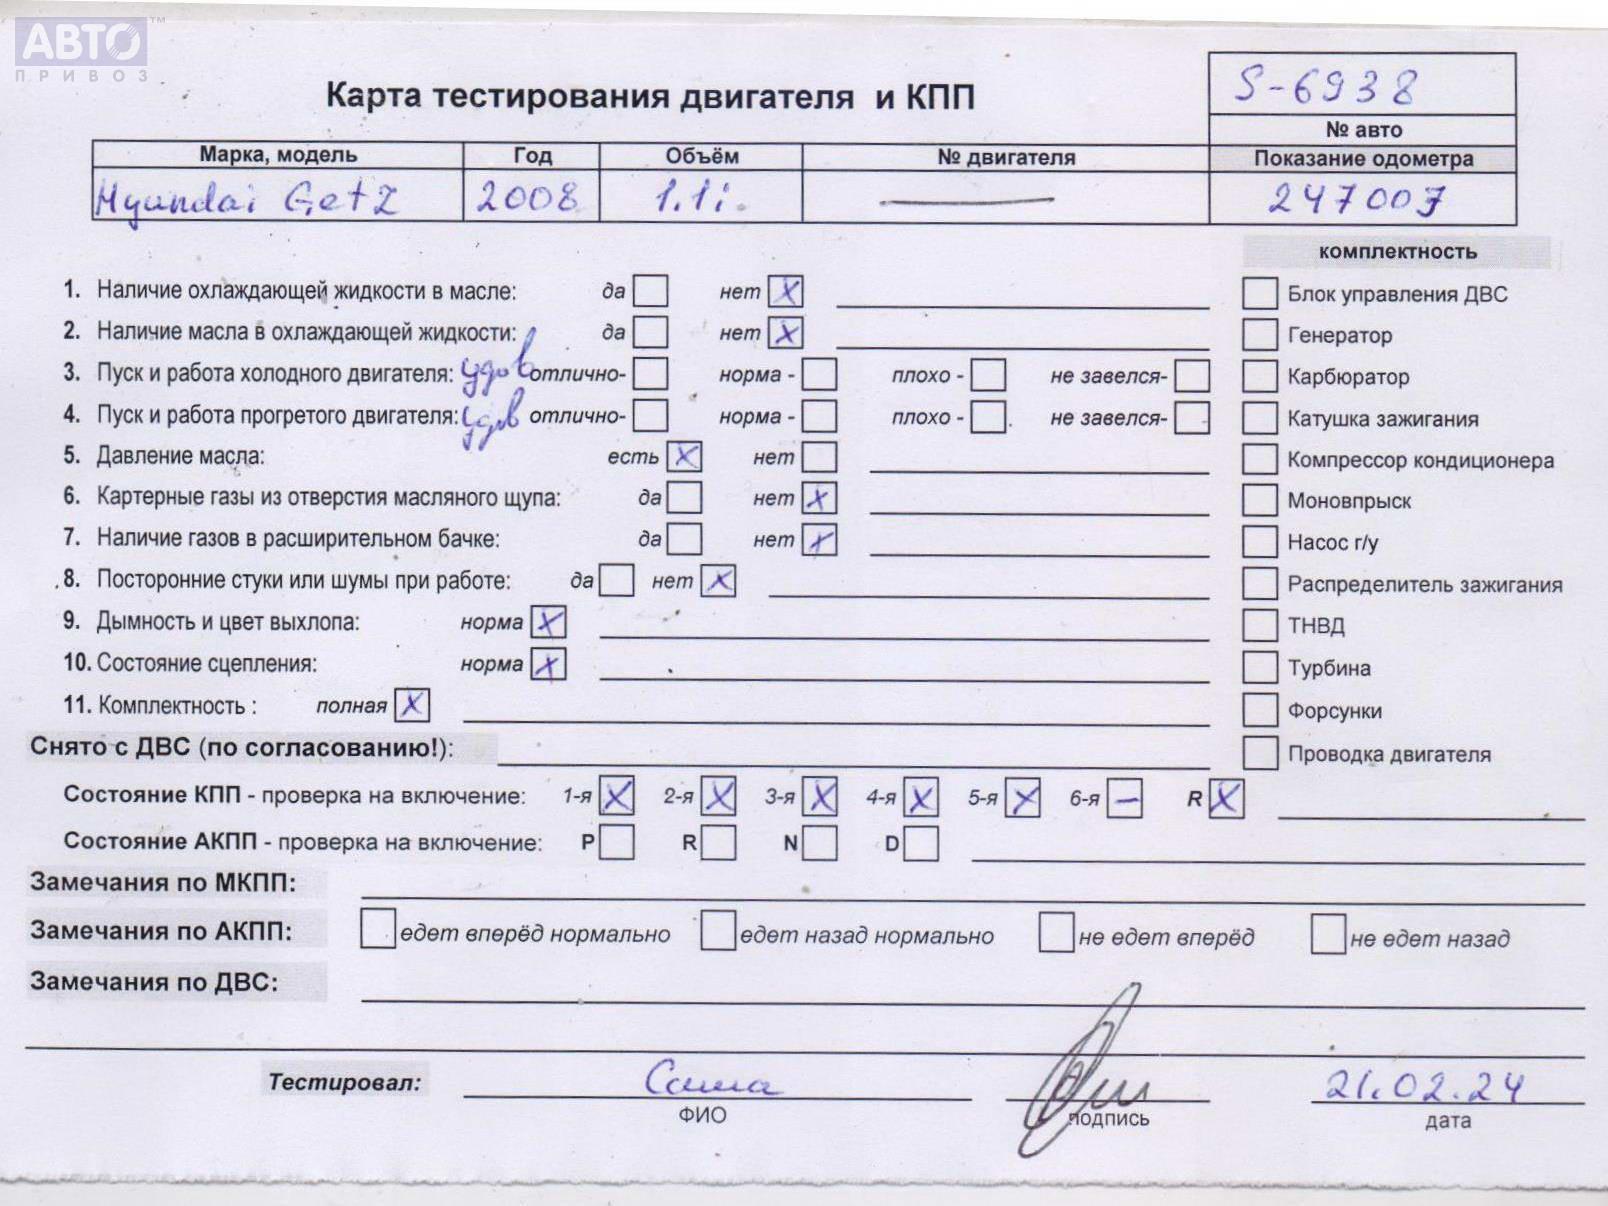 АВТО™
ПРИВОЗ
Карта тестирования двигателя и КПП
S-6938
№ авто
Марка, модель Год Объём № двигателя Показание одометра
Hyundai Getz 2008 1.1i. — 247007
комплектность
1. Наличие охлаждающей жидкости в масле: да нет X
Блок управления ДВС
2. Наличие масла в охлаждающей жидкости: да нет X
Генератор
3. Пуск и работа холодного двигателя: удов отлично- норма - плохо - не завелся-
Карбюратор
4. Пуск и работа прогретого двигателя: удв отлично- норма - плохо - не завелся-
Катушка зажигания
5. Давление масла: есть X нет
Компрессор кондиционера
6. Картерные газы из отверстия масляного щупа: да нет X
Моновпрыск
7. Наличие газов в расширительном бачке: да нет X
Насос г/у
8. Посторонние стуки или шумы при работе: да нет X
Распределитель зажигания
9. Дымность и цвет выхлопа: норма X
ТНВД
10. Состояние сцепления: норма X
Турбина
11. Комплектность : полная X
Форсунки
Снято с ДВС (по согласованию!):
Проводка двигателя
Состояние КПП - проверка на включение: 1-я X 2-я X 3-я X 4-я X 5-я X 6-я — R X
Состояние АКПП - проверка на включение: P R N D
Замечания по МКПП:
Замечания по АКПП: едет вперёд нормально едет назад нормально не едет вперёд не едет назад
Замечания по ДВС:
Тестировал: Саша 21.02.24
ФИО подпись дата